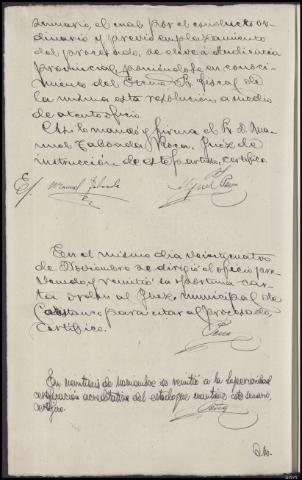 sumario, el cual por el conducto or-
dinario y previo emplazamiento
del procesado, se eleve á Audiencia
provincial, poniéndose en conoci-
miento del Excmo. Sr. Fiscal de
la misma esta resolución, a medio
de atento oficio.
Así lo mandó y firma el Sr. D. Ma-
nuel Taboada Roca, Juez de
instrucción de este partido, certifico
E/. Manuel Taboada Miguel
En el mismo dia veinticuatro
de Noviembre se dirigió el oficio pre-
venido y remitió la oportuna car-
ta orden al Juez municipal de
para citar al procesado,
Certifico.
En veintiseis de noviembre se remitió a la Superioridad
certificación acreditativa del estado que mantiene este sumario,
certifico